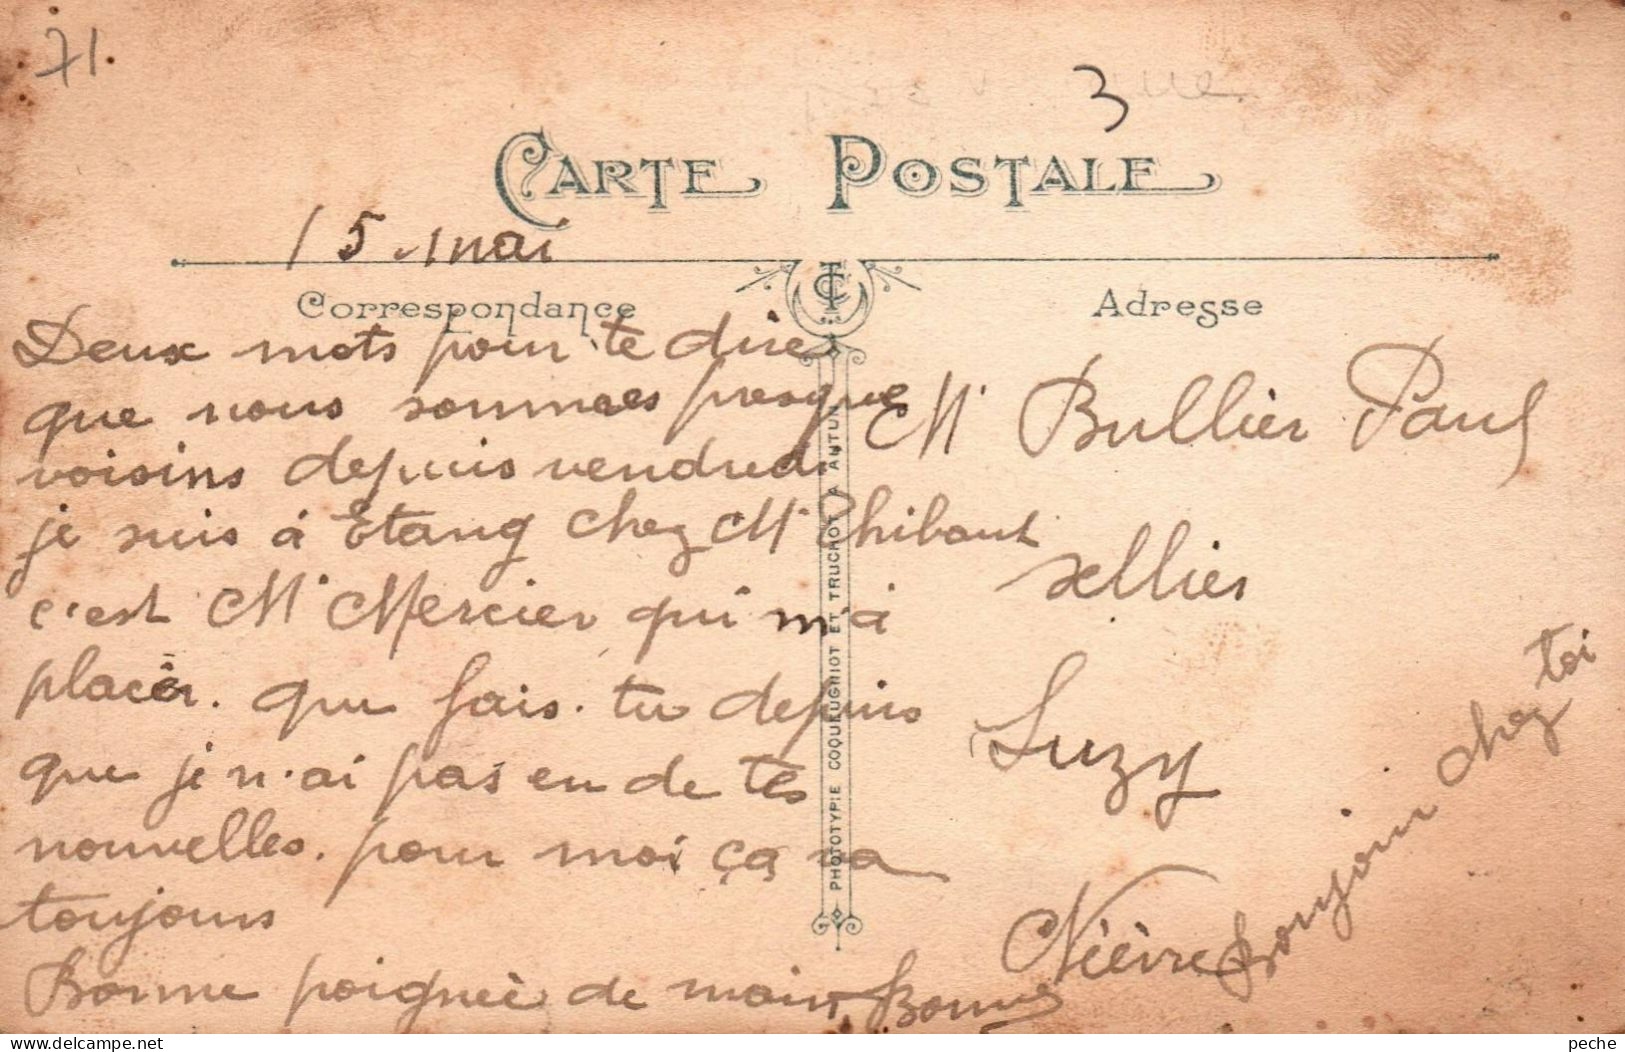 71.
3
CARTE POSTALE
15 mai
Correspondance
Adresse
Deux mots pour te dire
que nous sommes presque
voisins depuis vendredi
je suis à Etang chez Mr Thibaut
c'est Mr Mercier qui m'a
placer. que fais.tu depuis
que je n'ai pas eu de tes
nouvelles. pour moi ça va
toujours
Bonne poignée de main
Mr Bullier Paul
sellier
Luzy
Nièvre
Bonjour chez toi
PHOTOTYPIE COQUEUGNIOT ET TRUCHOT A AUTUN
delcampe.net
peche